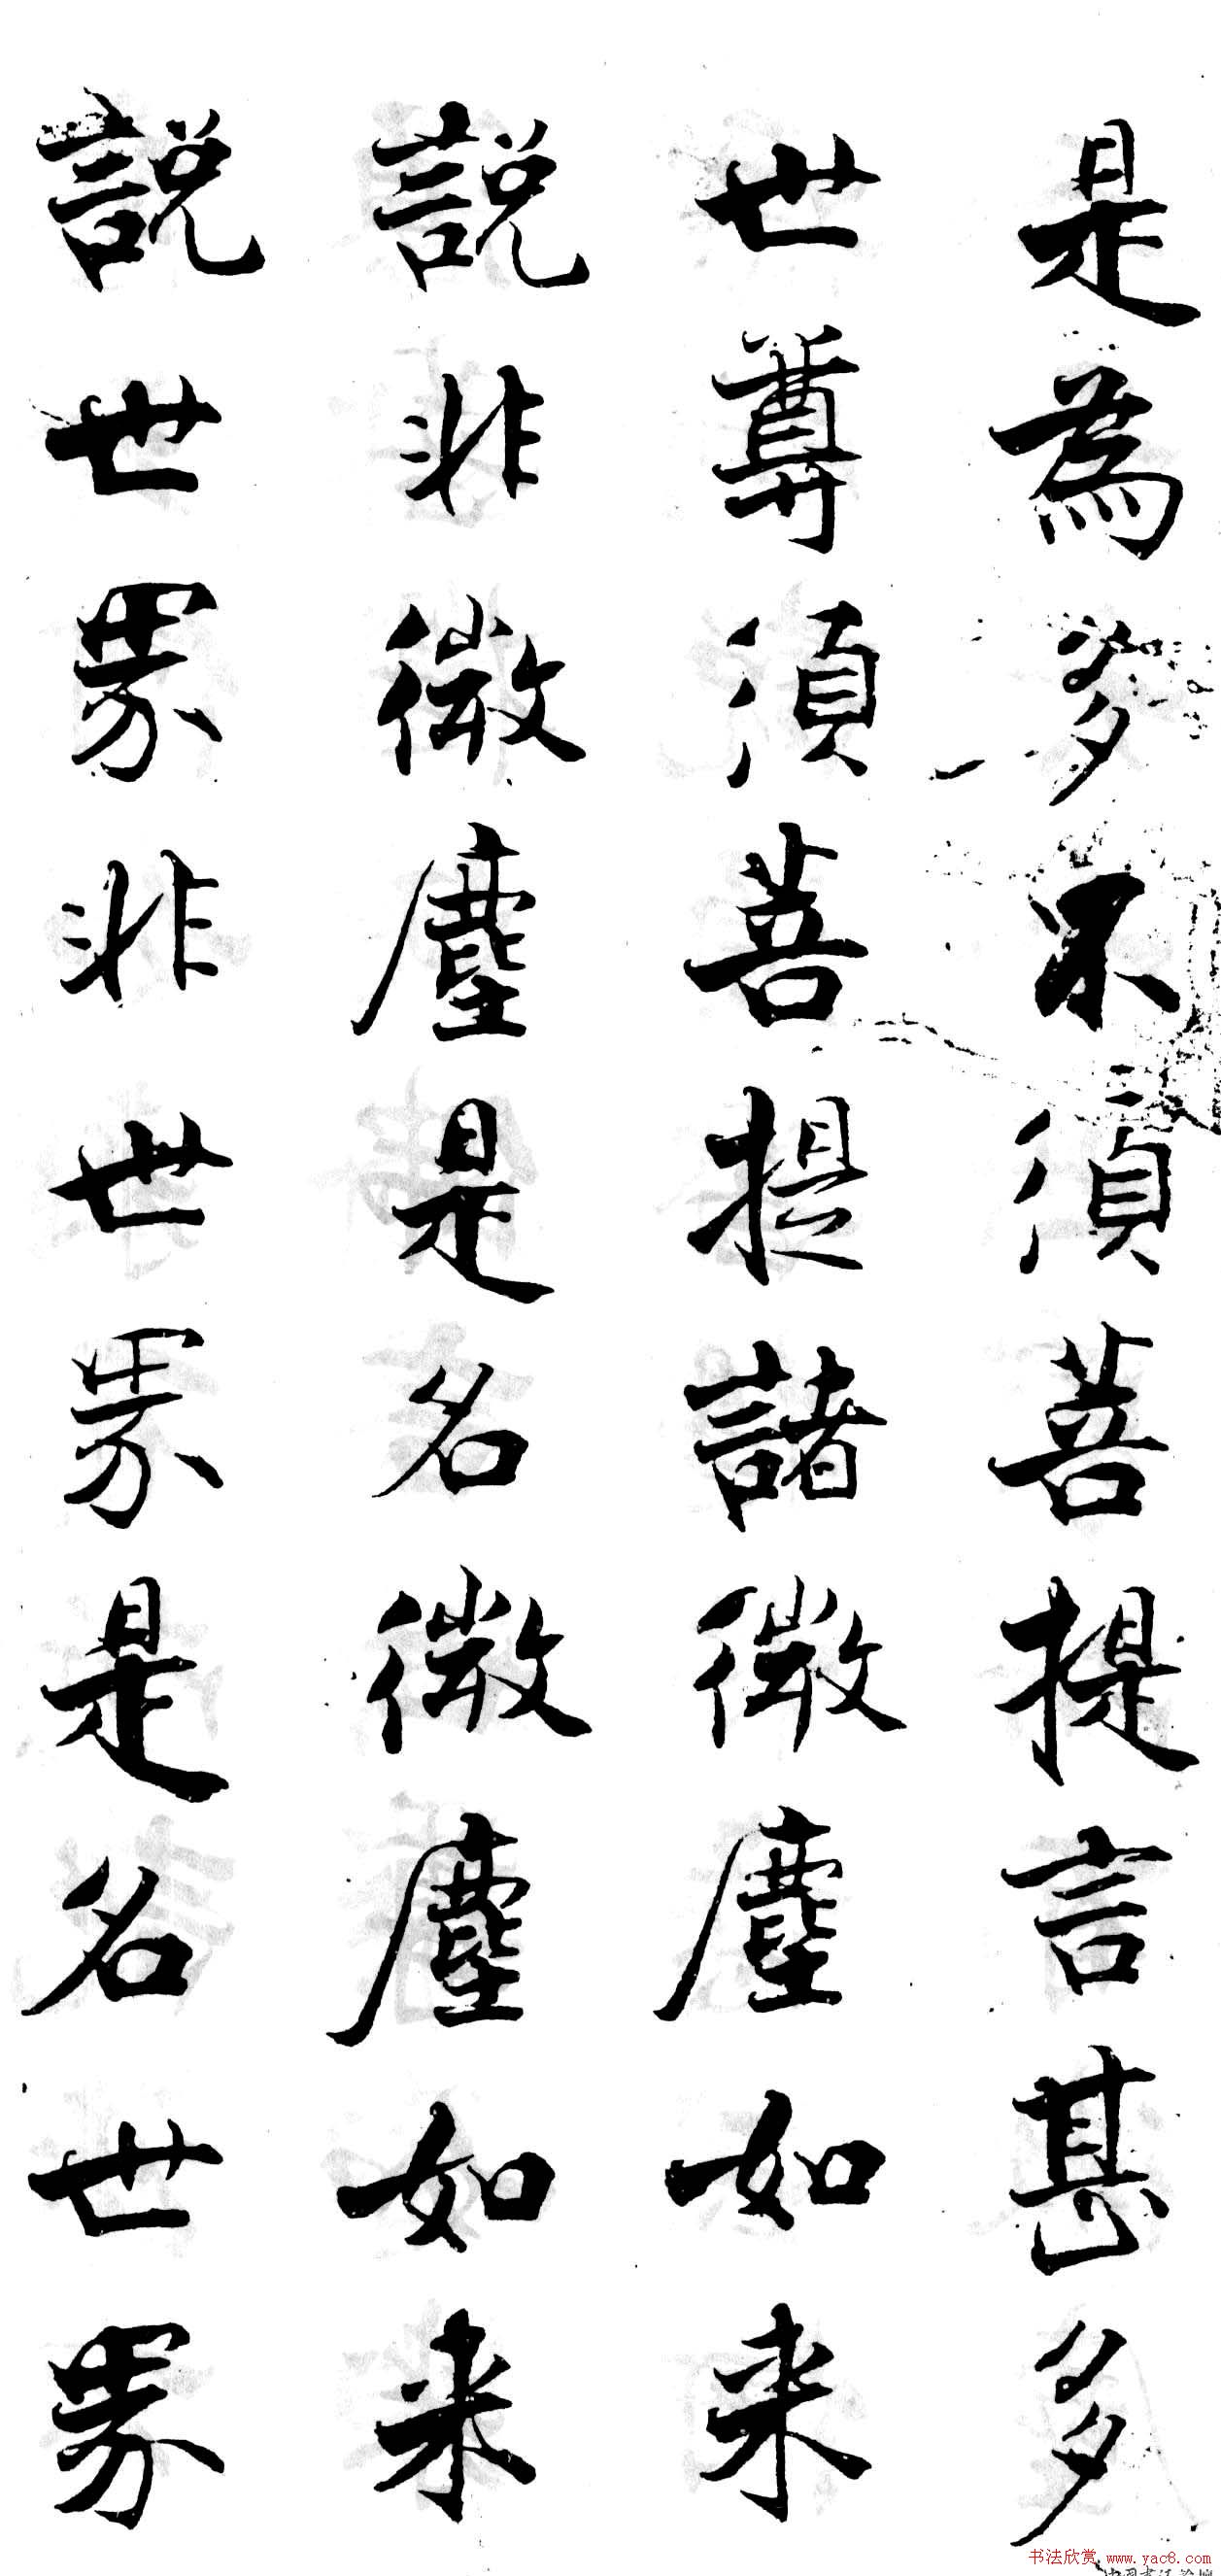 是為多不須菩提言甚多
世尊須菩提諸微塵如来
說非微塵是名微塵如来
說世界非世界是名世界
书法欣赏 www.yac8.com